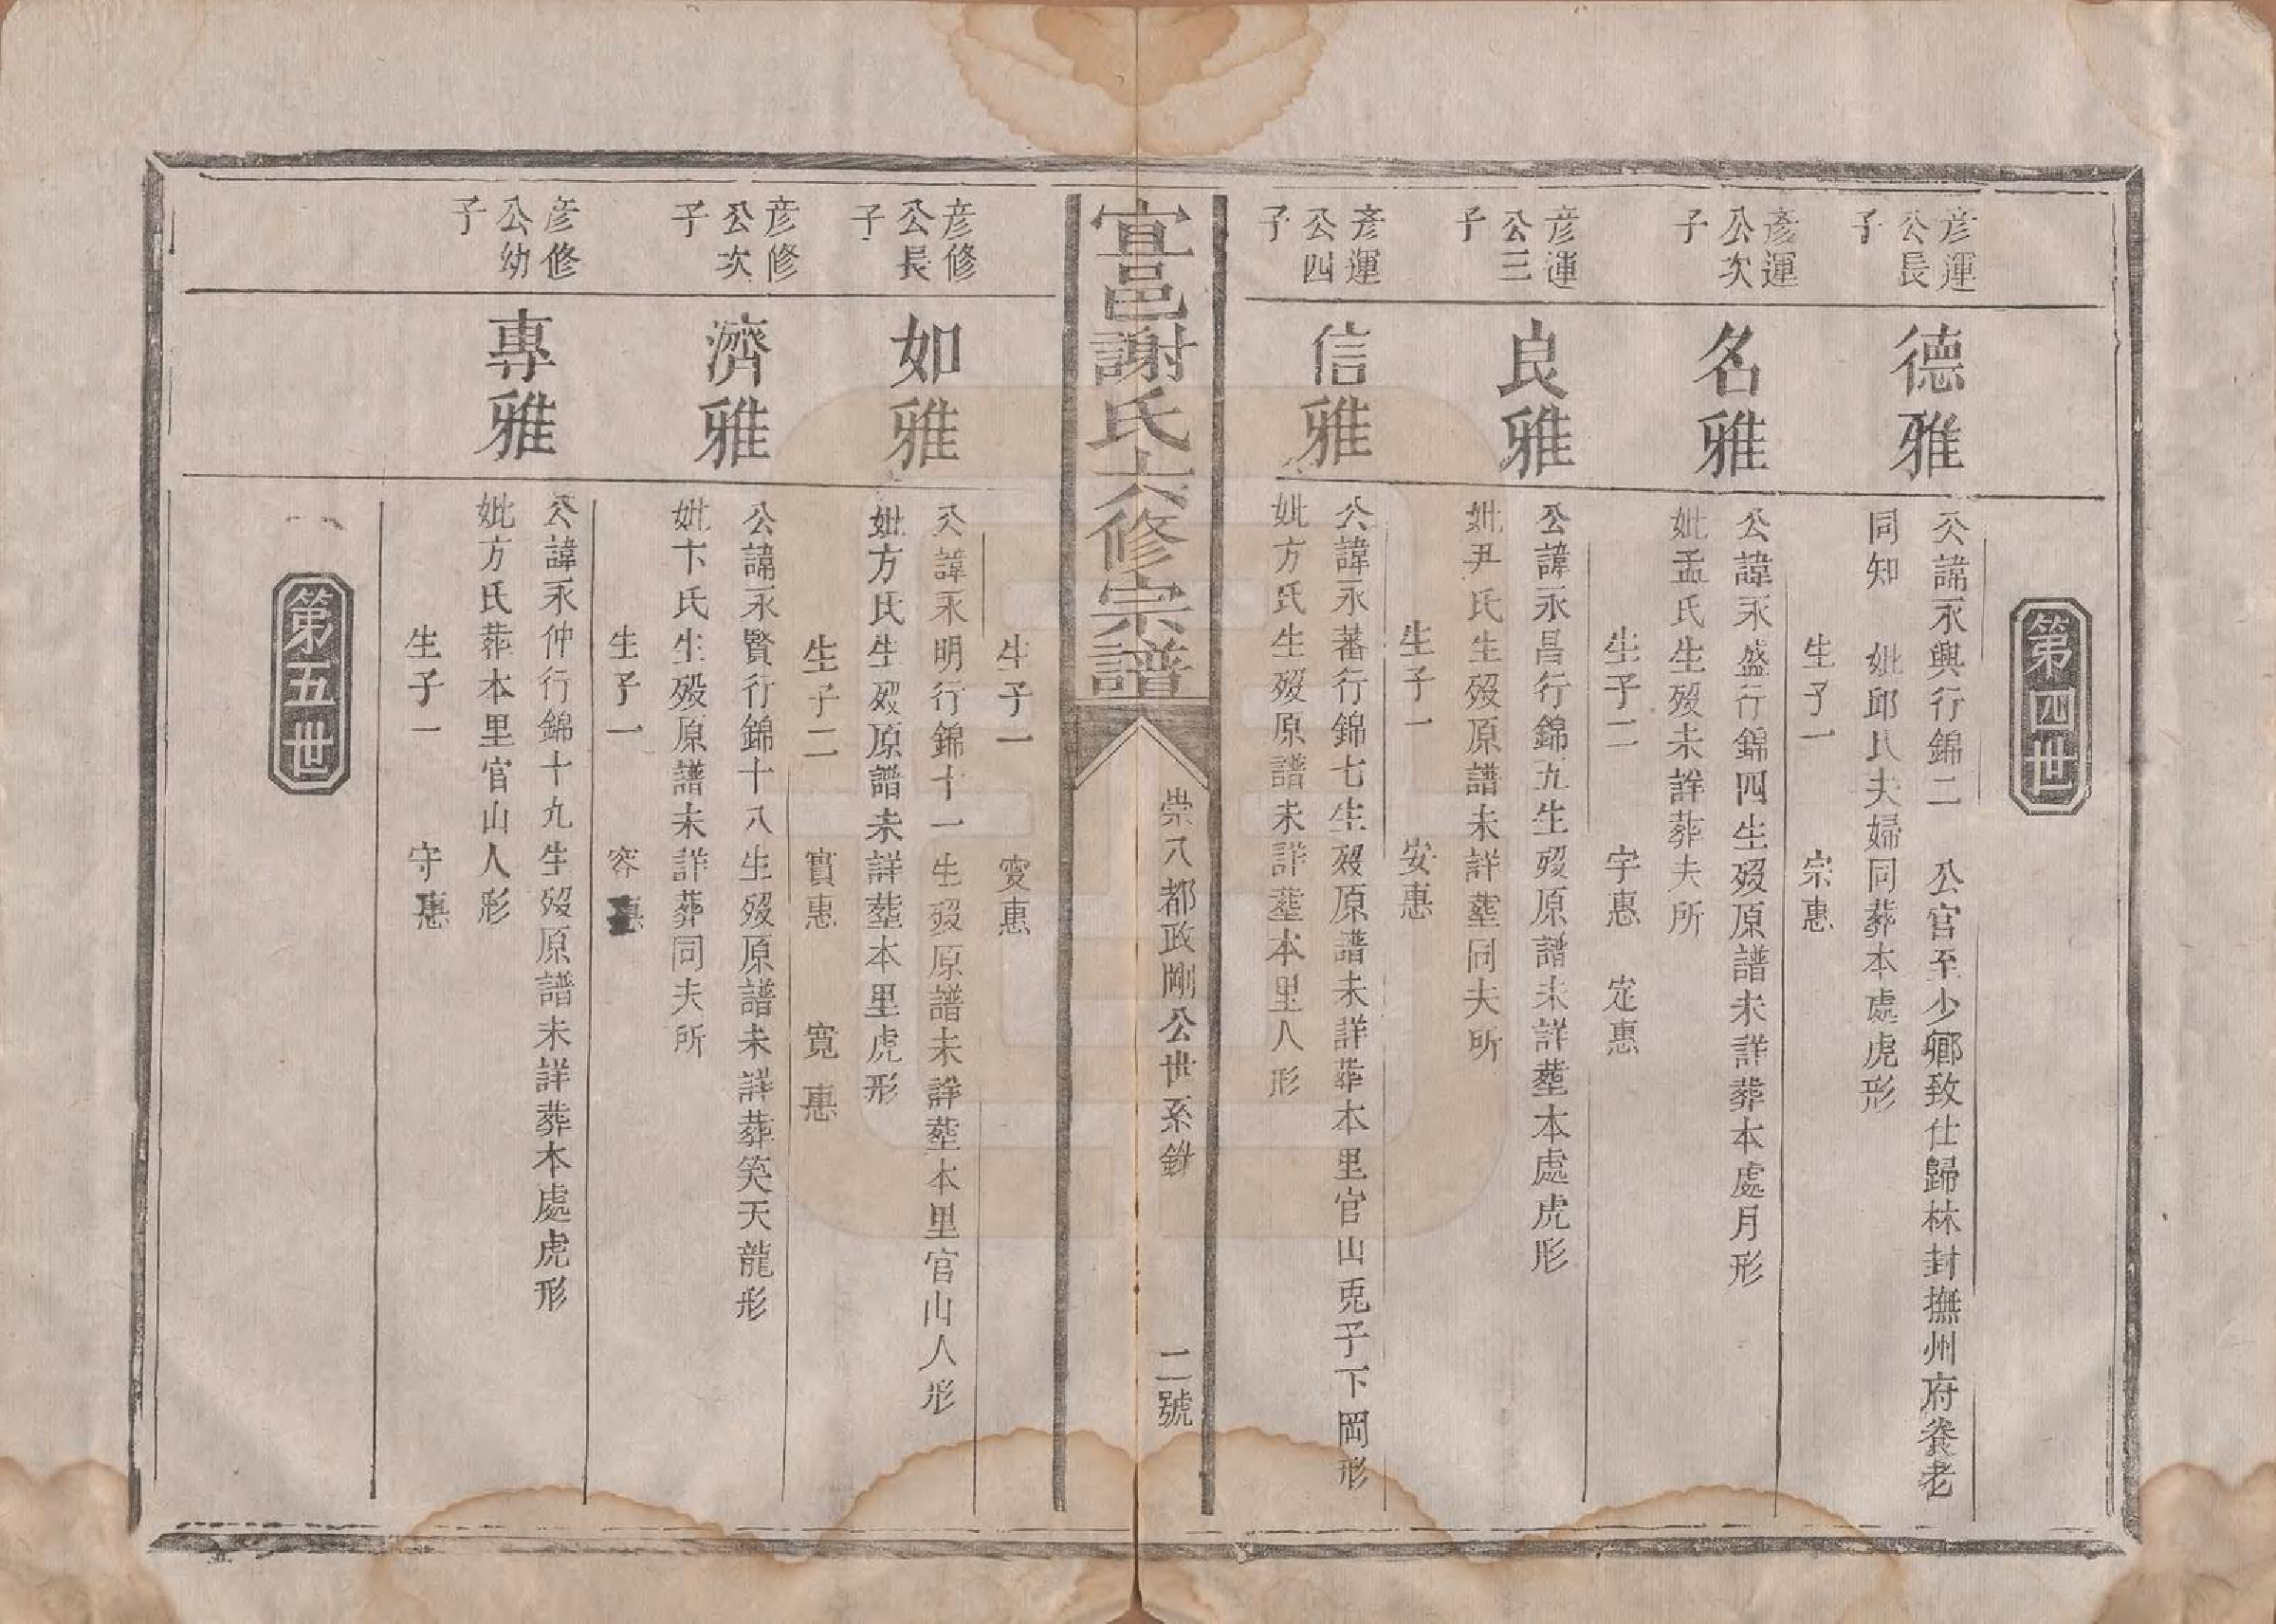 第四世
彦運
公長
子
德雅
公諱永興行錦二 公官至少鄉致仕歸林封撫州府養老
同知 妣邱氏夫婦同葬本處虎形
生子一 宗惠
彥運
公次
子
名雅
公諱永盛行錦四生歿原譜未詳葬本處月形
妣孟氏生歿未詳葬夫所
生子二 宇惠 定惠
彦運
公三
子
良雅
公諱永昌行錦九生歿原譜未詳塟本處虎形
妣尹氏生歿原譜未詳塟同夫所
生子一 安惠
彥運
公四
子
信雅
公諱永蕃行錦七生歿原譜未詳葬本里官山兎子下岡形
妣方氏生歿原譜未詳塟本里人形
宜邑謝氏六修宗譜
崇八都政剛公世系
二號
生子一 変惠
彦修
公長
子
如雅
公諱永明行錦十一生歿原譜未詳塟本里官山人形
妣方氏生歿原譜未詳塟本里虎形
生子二 實惠 寬惠
彦修
公次
子
濟雅
公諱永賢行錦十八生歿原譜未詳葬笑天龍形
妣卞氏生歿原譜未詳葬同夫所
生子一 容惠
彦修
公幼
子
專雅
公諱永仲行錦十九生歿原譜未詳葬本處虎形
妣方氏葬本里官山人形
生子一 守惠
第五世